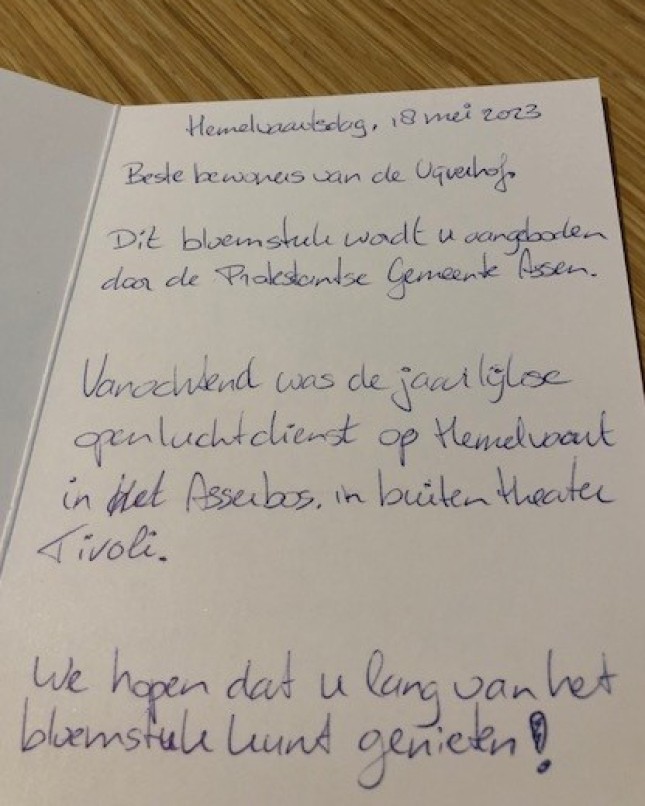 Hemelvaartsdag, 18 mei 2023
Beste bewoners van de Vijverhof,
Dit bloemstuk wordt u aangeboden
door de Protestantse Gemeente Assen.
Vanochtend was de jaarlijkse
openluchtdienst op Hemelvaart
in het Asserbos, in buitentheater
Tivoli.
We hopen dat u lang van het
bloemstuk kunt genieten!